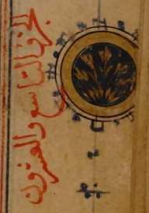 الجزء التاسع والعشرون